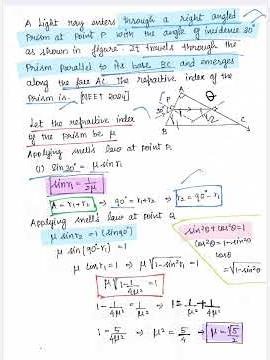 A light ray enters through a right angled
Prism at point P with the angle of incidence 30°
as shown in figure. It travels through the
Prism parallel to its base BC and emerges
along the face AC. The refractive index of the
Prism is. [NEET 2024]
A
θ
P
30°
r1
r2
Q
B
C
Let the refractive index
of the prism be μ
Applying snells law at point P.
(1) sin30° = μ sinr1
sinr1 = 1/2μ
A = r1+r2 → 90° = r1+r2 → r2 = 90° - r1
Applying snells law at point Q
μ sinr2 = 1 (sin90°)
μ sin(90-r1) = 1
μ cosr1 = 1 → μ√1-sin²r1 = 1
μ√1-1/4μ² = 1
1 - 1/4μ² = 1/μ² → 1 = 1/μ² + 1/4μ²
1 = 5/4μ² → μ² = 5/4 → μ = √5/2
sin²θ+cos²θ=1
cos²θ = 1-sin²θ
cosθ
= √1-sin²θ